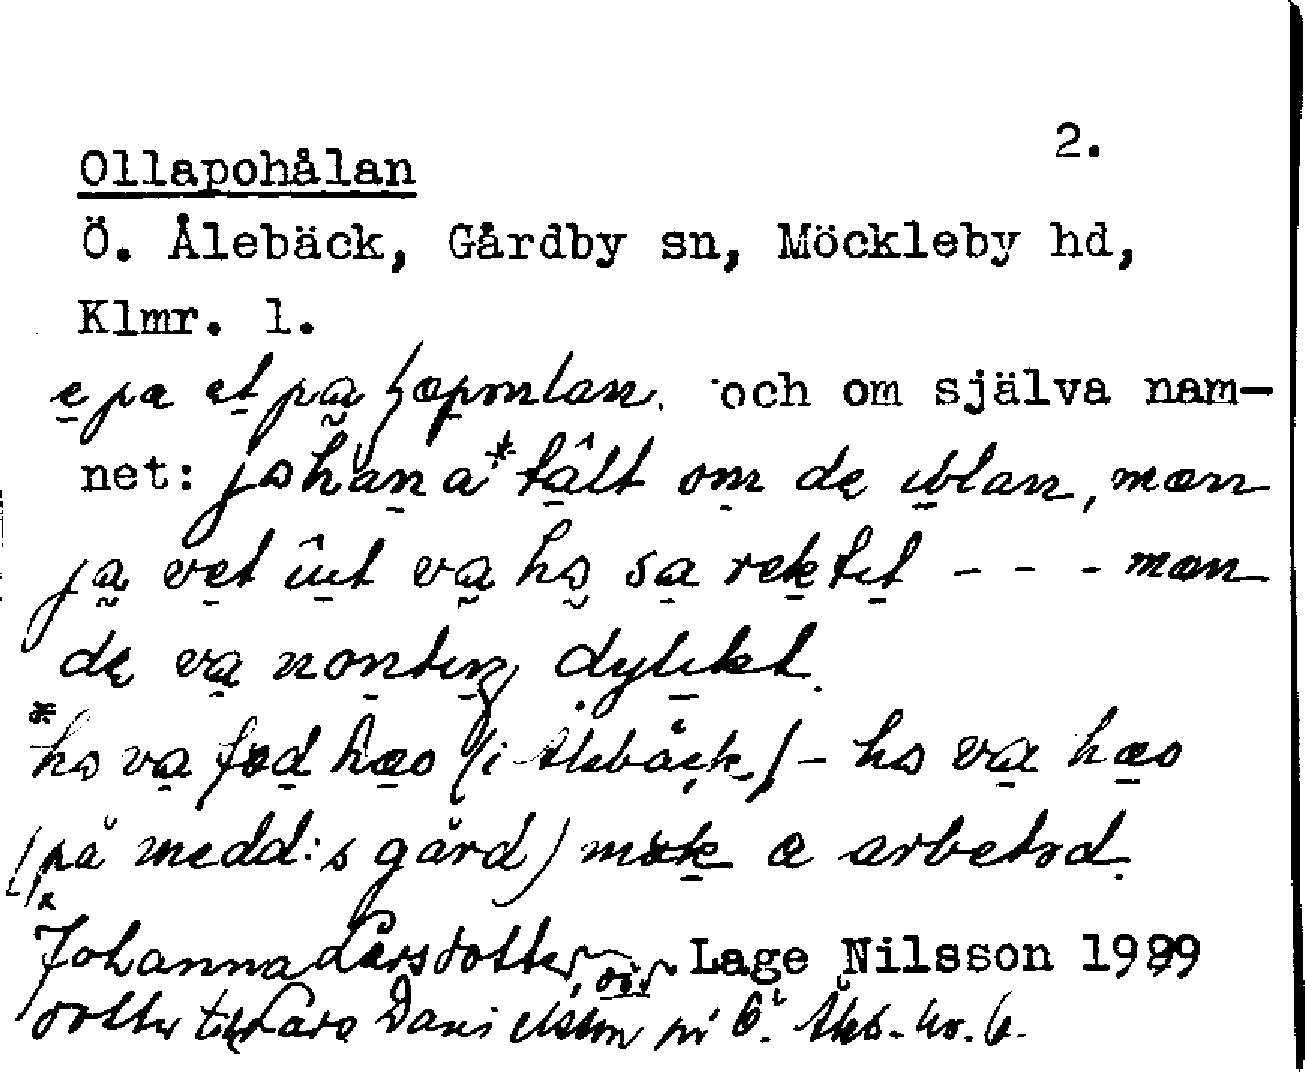 2.
Ollapohålan
Ö. Ålebäck, Gårdby sn, Möckleby hd,
Klmr. l.
och om själva nam-
net: johana* tâlt om de iblan, mæn
ja vet int va ho sa rektit - - - mæn
de va nontiŋ dylikt.
* ho va fød hæo (i Ålebäck) - ho va hæo
(på medd:s gård) møk e arbetod.
Johanna Larsdotter, Lage Nilsson 1929
dotter till Lars Danielsson på Ö. Åleb. no. 6.